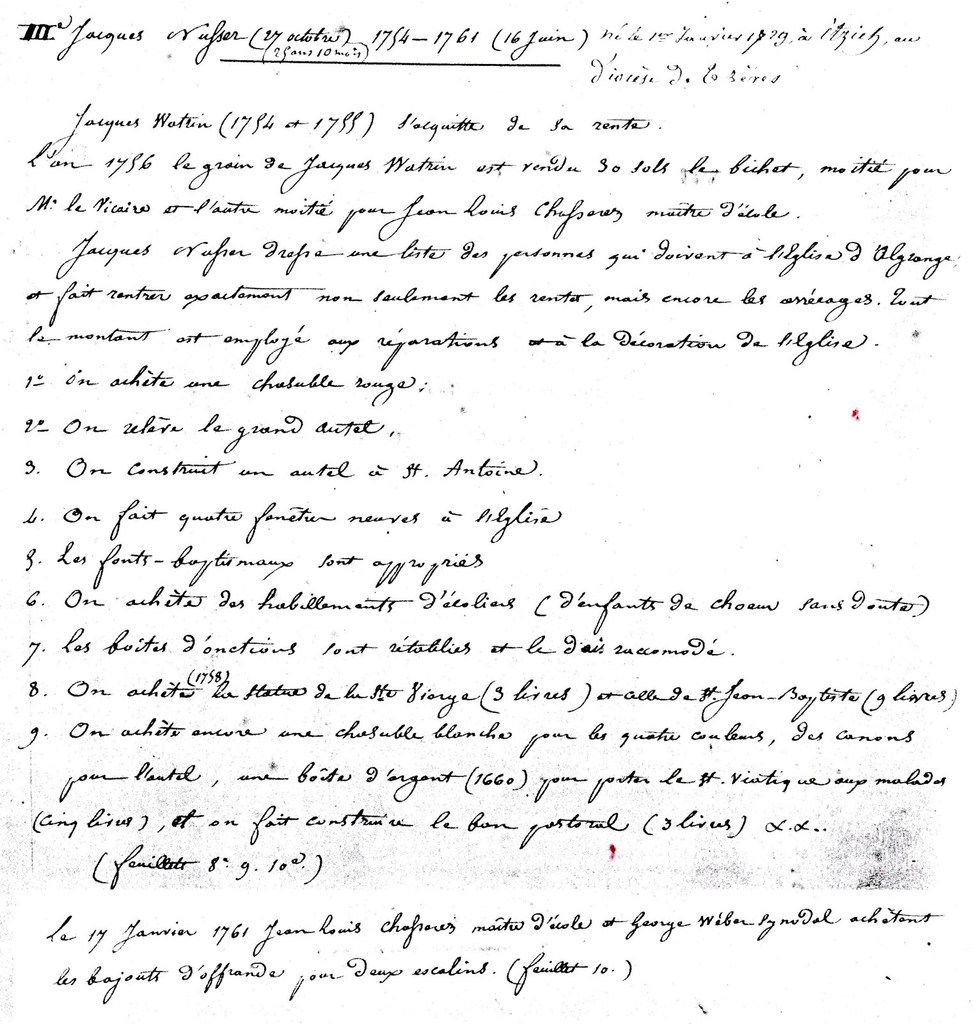 IIIe Jacques Nusser (27 octobre) 1754 – 1761 (16 Juin) né le 1er Janvier 1729, à Itzich, au
(25 ans 10 mois)
diocèse de Trèves
Jacques Watrin (1754 et 1755) s'acquitte de sa rente.
L'an 1756 le grain de Jacques Watrin est vendu 30 sols le bichet, moitié pour
Mr le Vicaire et l'autre moitié pour Jean Louis Chasserez maître d'école.
Jacques Nusser dresse une liste des personnes qui doivent à l'Eglise d'Algrange,
et fait rentrer exactement non seulement les rentes, mais encore les arrérages. Tout
le montant est employé aux réparations et à la décoration de l'Eglise.
1o On achète une chasuble rouge;
2o On relève le grand autel,
3. On construit un autel à St. Antoine.
4. On fait quatre fenêtres neuves à l'Eglise
5. Les fonts-baptismaux sont appropriés
6. On achète des habillements d'écoliers (d'enfants de choeur sans doute)
7. Les boîtes d'onctions sont rétablies et le dais raccomodé.
(1758)
8. On achète la statue de la Ste Vierge (3 livres) et celle de St. Jean-Baptiste (9 livres)
9. On achète encore une chasuble blanche pour les quatre couleurs, des canons
pour l'autel, une boîte d'argent (1660) pour porter le St. Viatique aux malades
(cinq livres), et on fait construire le ban pastoral (3 livres) &.&..
(feuillets 8e 9. 10e.)
Le 17 Janvier 1761 Jean Louis Chasserez maître d'école et George Wéber synodal achètent
les bajouts d'offrande pour deux escalins. (feuillet 10.)